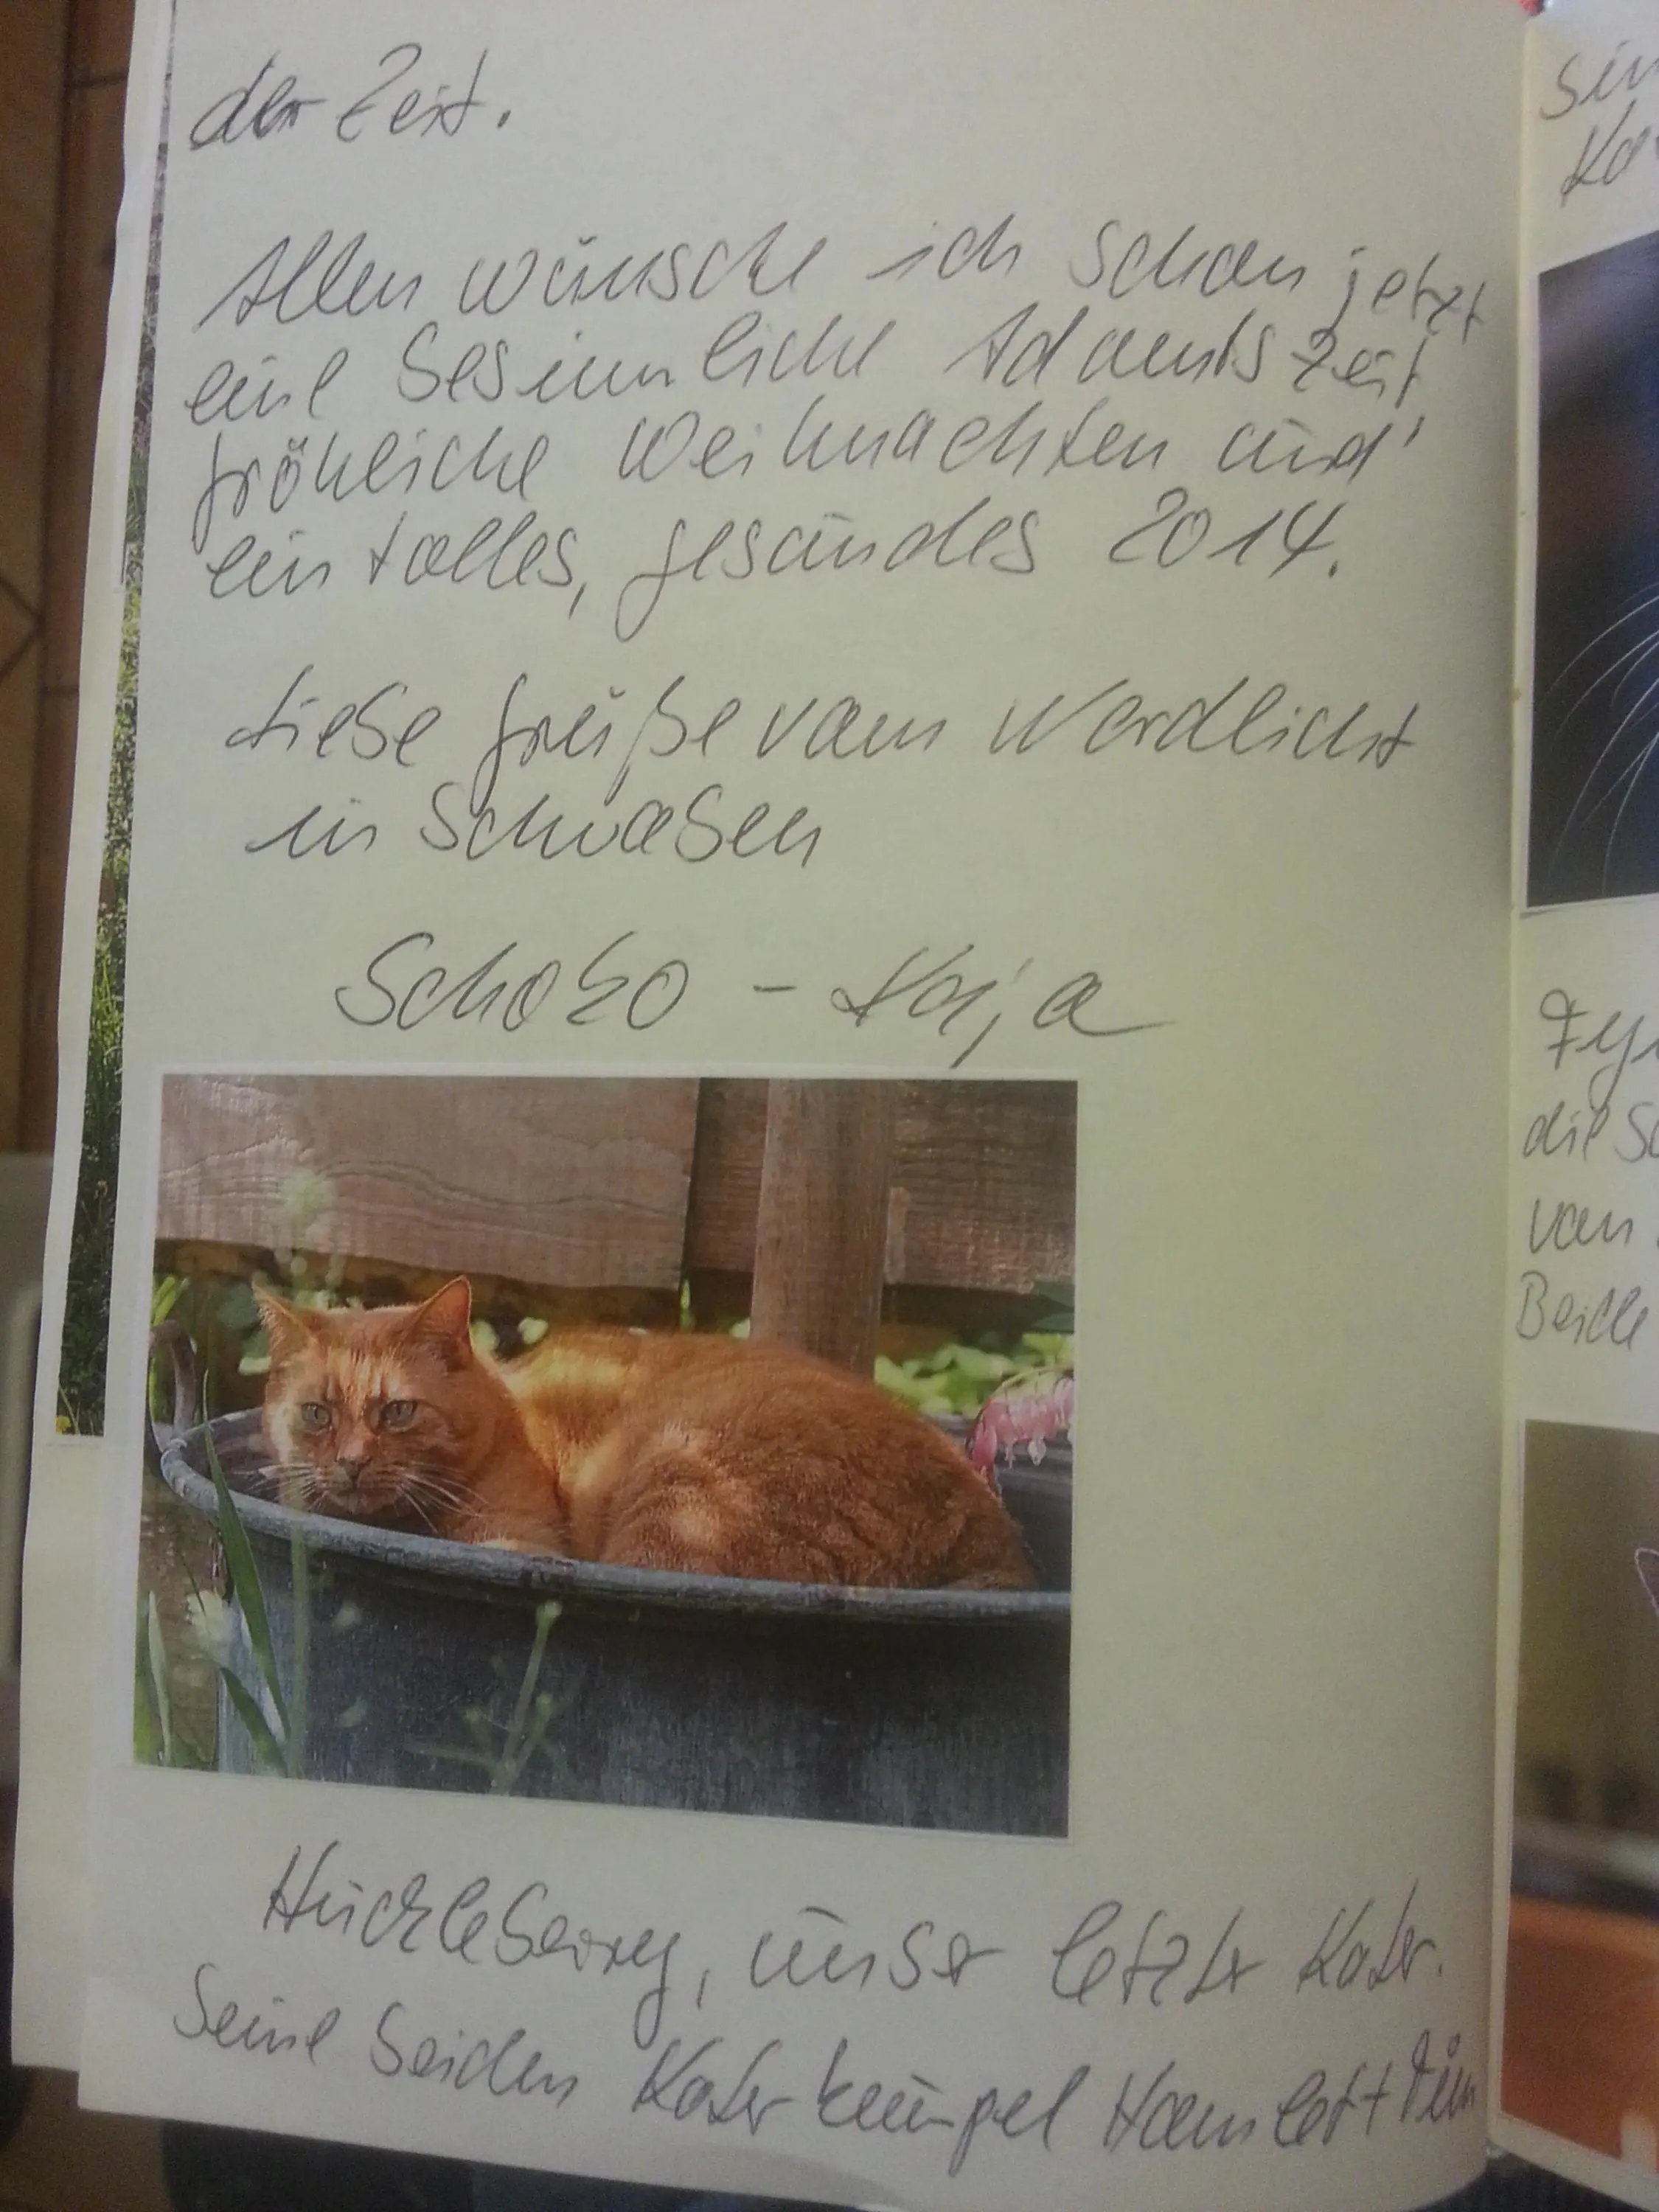 der Zeit.
Allen wünsche ich schon jetzt
eine besinnliche Adventszeit,
fröhliche Weihnachten und
ein tolles, gesundes 2014.
Liebe Grüße vom Nordlicht
in Schwaben
Schoko - Kaja
Huckleberry, unser letzter Kater.
Seine beiden Kater kumpel Hamlet +
sin
Ka
die Sc
von
Beide